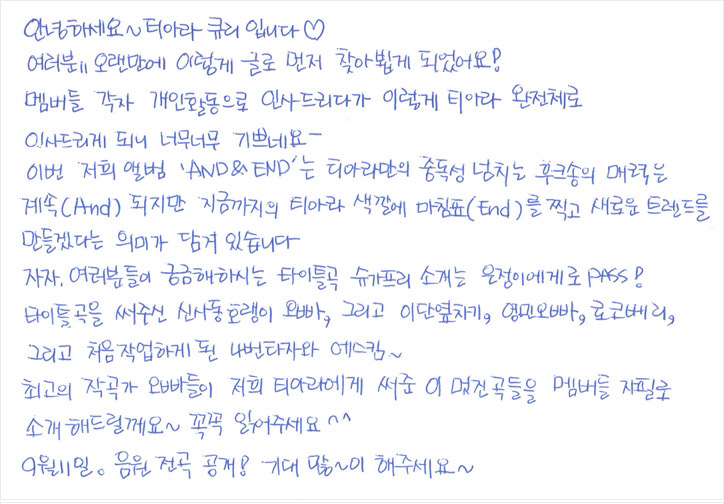 안녕하세요~ 티아라 큐리 입니다♡
여러분ii 오랜만에 이렇게 글로 먼저 찾아뵙게 되었어요!
멤버들 각자 개인활동으로 인사드리다가 이렇게 티아라 완전체로
인사드리게 되니 너무너무 기쁘네요-
이번 저희 앨범 'AND&END'는 티아라만의 중독성 넘치는 후크송의 매력은
계속(And) 되지만 지금까지의 티아라 색깔에 마침표(End)를 찍고 새로운 트렌드를
만들겠다는 의미가 담겨 있습니다
자자, 여러분들이 궁금해하시는 타이틀곡 슈가프리 소개는 은정이에게로 PASS!
타이틀곡을 써주신 신사동호랭이 오빠, 그리고 이단옆차기, 영민오빠, 로코베리,
그리고 처음작업하게 된 4번타자와 에스킴~
최고의 작곡가 오빠들이 저희 티아라에게 써준 이 멋진곡들을 멤버들 자필로
소개해드릴께요~ 꼭꼭 읽어주세요^^
9월11일. 음원 전곡 공개! 기대 많~이 해주세요~